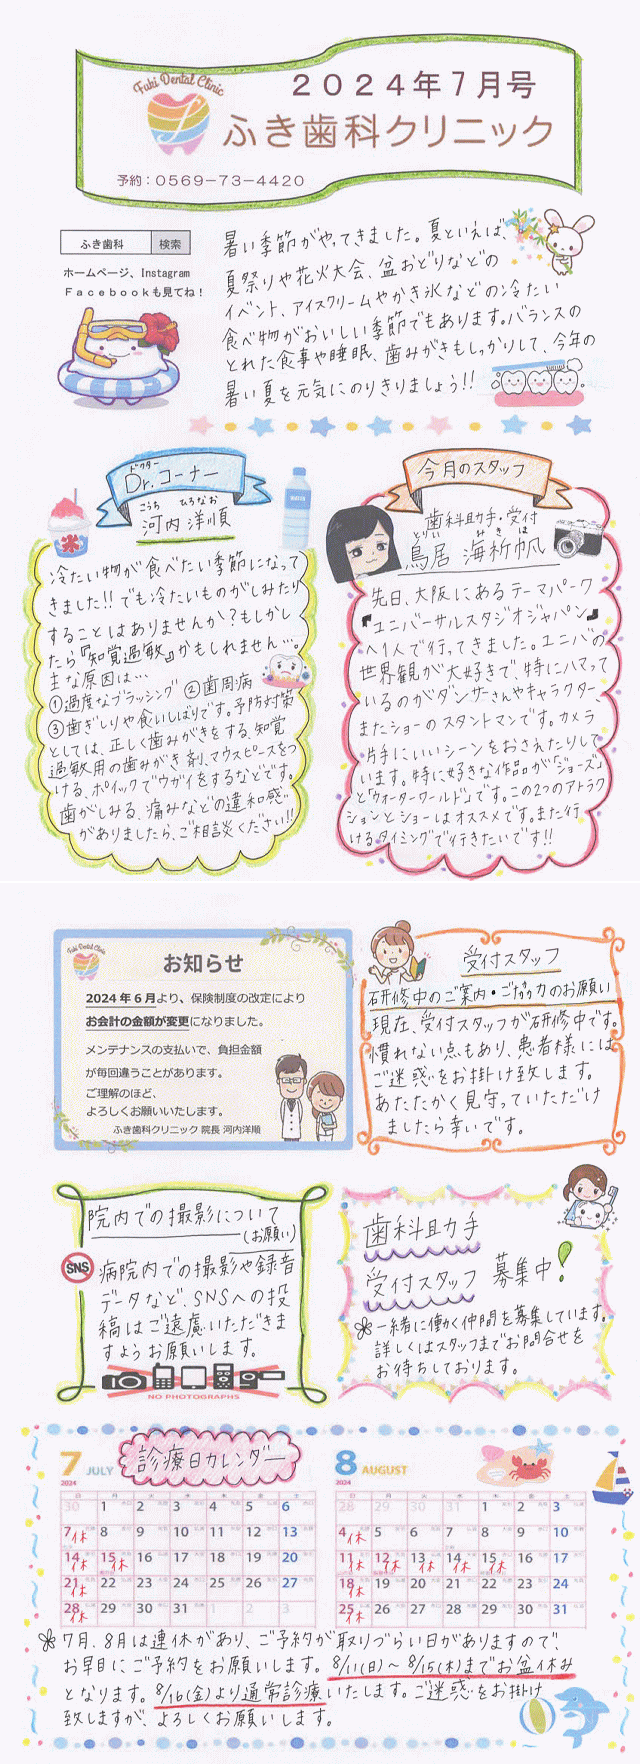 Fuki Dental Clinic
2024年7月号
ふき歯科クリニック
予約：0569-73-4420
ふき歯科 検索
ホームページ、Instagram
Facebookも見てね！
暑い季節がやってきました。夏といえば、
夏祭りや花火大会、盆おどりなどの
イベント、アイスクリームやかき氷などの冷たい
食べ物がおいしい季節でもあります。バランスの
とれた食事や睡眠、歯みがきもしっかりして、今年の
暑い夏を元気にのりきりましょう!!
ドクター
Dr.コーナー
こうち ひろなお
河内 洋順
氷
WATER
冷たい物が食べたい季節になって
きました!!でも冷たいものがしみたり
することはありませんか?もしかし
たら『知覚過敏』かもしれません…。
主な原因は…
①過度なブラッシング ②歯周病
③歯ぎしりや食いしばりです。予防対策
としては、正しく歯みがきをする、知覚
過敏用の歯みがき剤、マウスピースをつ
ける、ポイックでウガイをするなどです。
歯がしみる、痛みなどの違和感
がありましたら、ご相談ください!!
今月のスタッフ
歯科助手・受付
とりい みきほ
鳥居 海祈帆
先日、大阪にあるテーマパーク
『ユニバーサルスタジオジャパン』
へ1人で行ってきました。ユニバの
世界観が大好きで、特にハマって
いるのがダンサーさんやキャラクター、
またショーのスタントマンです。カメラ
片手にいいシーンをおさえたりして
います。特に好きな作品が「ジョーズ」
と「ウォーターワールド」です。この2つのアトラク
ションとショーはオススメです。また行
けるタイミングで行きたいです!!
Fuki Dental Clinic
お知らせ
2024年6月より、保険制度の改定により
お会計の金額が変更になりました。
メンテナンスの支払いで、負担金額
が毎回違うことがあります。
ご理解のほど、
よろしくお願いいたします。
ふき歯科クリニック 院長 河内洋順
受付スタッフ
研修中のご案内・ご協力のお願い
現在、受付スタッフが研修中です。
慣れない点もあり、患者様には
ご迷惑をお掛け致します。
あたたかく見守っていただけ
ましたら幸いです。
院内での撮影について
(お願い)
SNS
病院内での撮影や録音
データなど、SNSへの投
稿はご遠慮いただきま
すようお願いします。
NO PHOTOGRAPHS
歯科助手
受付スタッフ 募集中!
一緒に働く仲間を募集しています。
詳しくはスタッフまでお問合せを
お待ちしております。
診療日カレンダー
7 JULY
2024
日 月 火 水 木 金 土
30 1 2 3 4 5 6
7休 8 9 10 11 12 13
14休 15休 16 17 18 19 20
21休 22 23 24 25 26 27
28休 29 30 31 1 2 3
8 AUGUST
2024
日 月 火 水 木 金 土
28 29 30 31 1 2 3
4休 5 6 7 8 9 10
11休 12休 13休 14休 15休 16 17
18休 19 20 21 22 23 24
25休 26 27 28 29 30 31
7月、8月は連休があり、ご予約が取りづらい日がありますので、
お早目にご予約をお願いします。8/11(日)～8/15(木)までお盆休み
となります。8/16(金)より通常診療いたします。ご迷惑をお掛け
致しますが、よろしくお願いします。